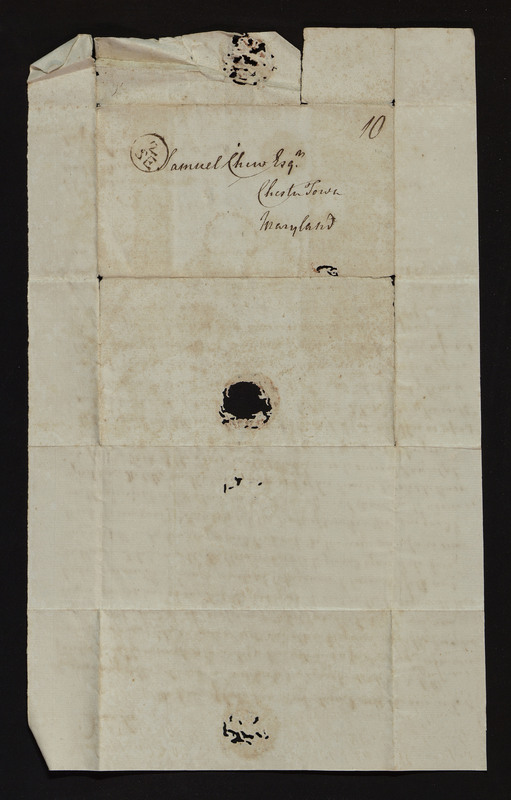 10
2
SE
Samuel Chew Esqr.
Chester Town
Maryland